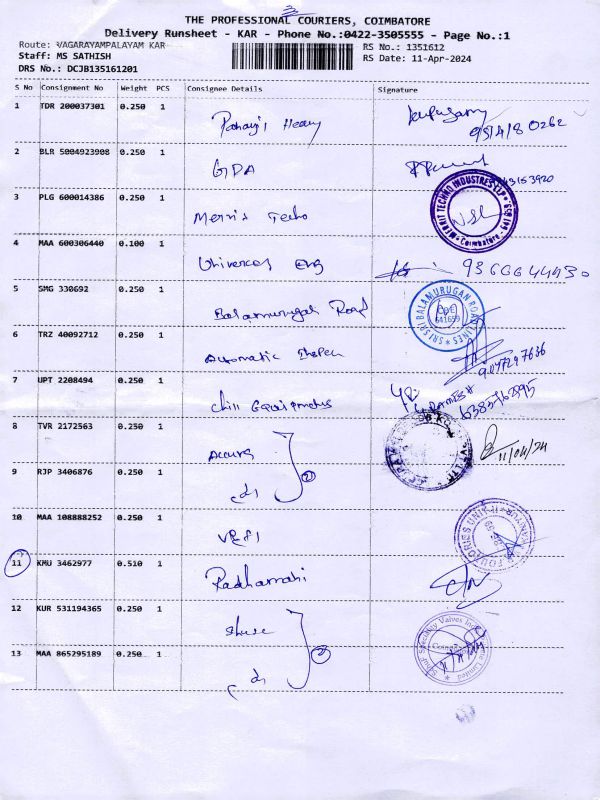 THE PROFESSIONAL COURIERS, COIMBATORE
Delivery Runsheet - KAR - Phone No.:0422-3505555 - Page No.:1
Route: VAGARAYAMPALAYAM KAR
RS No.: 1351612
Staff: MS SATHISH
RS Date: 11-Apr-2024
DRS No.: DCJB135161201
S No Consignment No Weight PCS Consignee Details Signature
1 TDR 200037301 0.250 1
2 BLR 5004923908 0.250 1 GDA
3 PLG 600014386 0.250 1 Merris Techo
MERRIT TECHNO INDUSTRIES LLP
Coimbatore
4 MAA 600306440 0.100 1 Univercel Eng 9366644930
5 SMG 330692 0.250 1 Balamurugan Road
SRI SRI BALAMURUGAN ROAD LINES
CBE
641659
6 TRZ 40092712 0.250 1 Automatic
7 UPT 2208494 0.250 1 Chill Equipments
8 TVR 2172563 0.250 1 Accura 11/04/24
9 RJP 3406876 0.250 1 cds
2
10 MAA 108888252 0.250 1
FOUNDRIES UNIT-II
11 KMU 3462977 0.510 1 Radhamani
12 KUR 531194365 0.250 1
13 MAA 865295189 0.250 1 cds
2
Speciality Valves